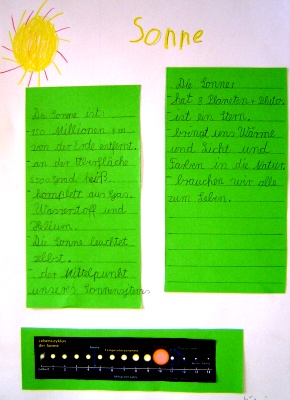 Sonne
Die Sonne ist:
150 Millionen km
von der Erde entfernt.
- an der Oberfläche
5500 grad heiß.
- komplett aus Gas.
Wasserstoff und
Helium.
Die Sonne leuchtet
selbst.
- der Mittelpunkt
unseres Sonnensystems
Die Sonne:
- hat 8 Planeten + Pluto.
- ist ein Stern.
- bringt uns Wärme
und Licht und
Farben in die Natur.
- brauchen wir alle
zum Leben.
Lebenszyklus
der Sonne